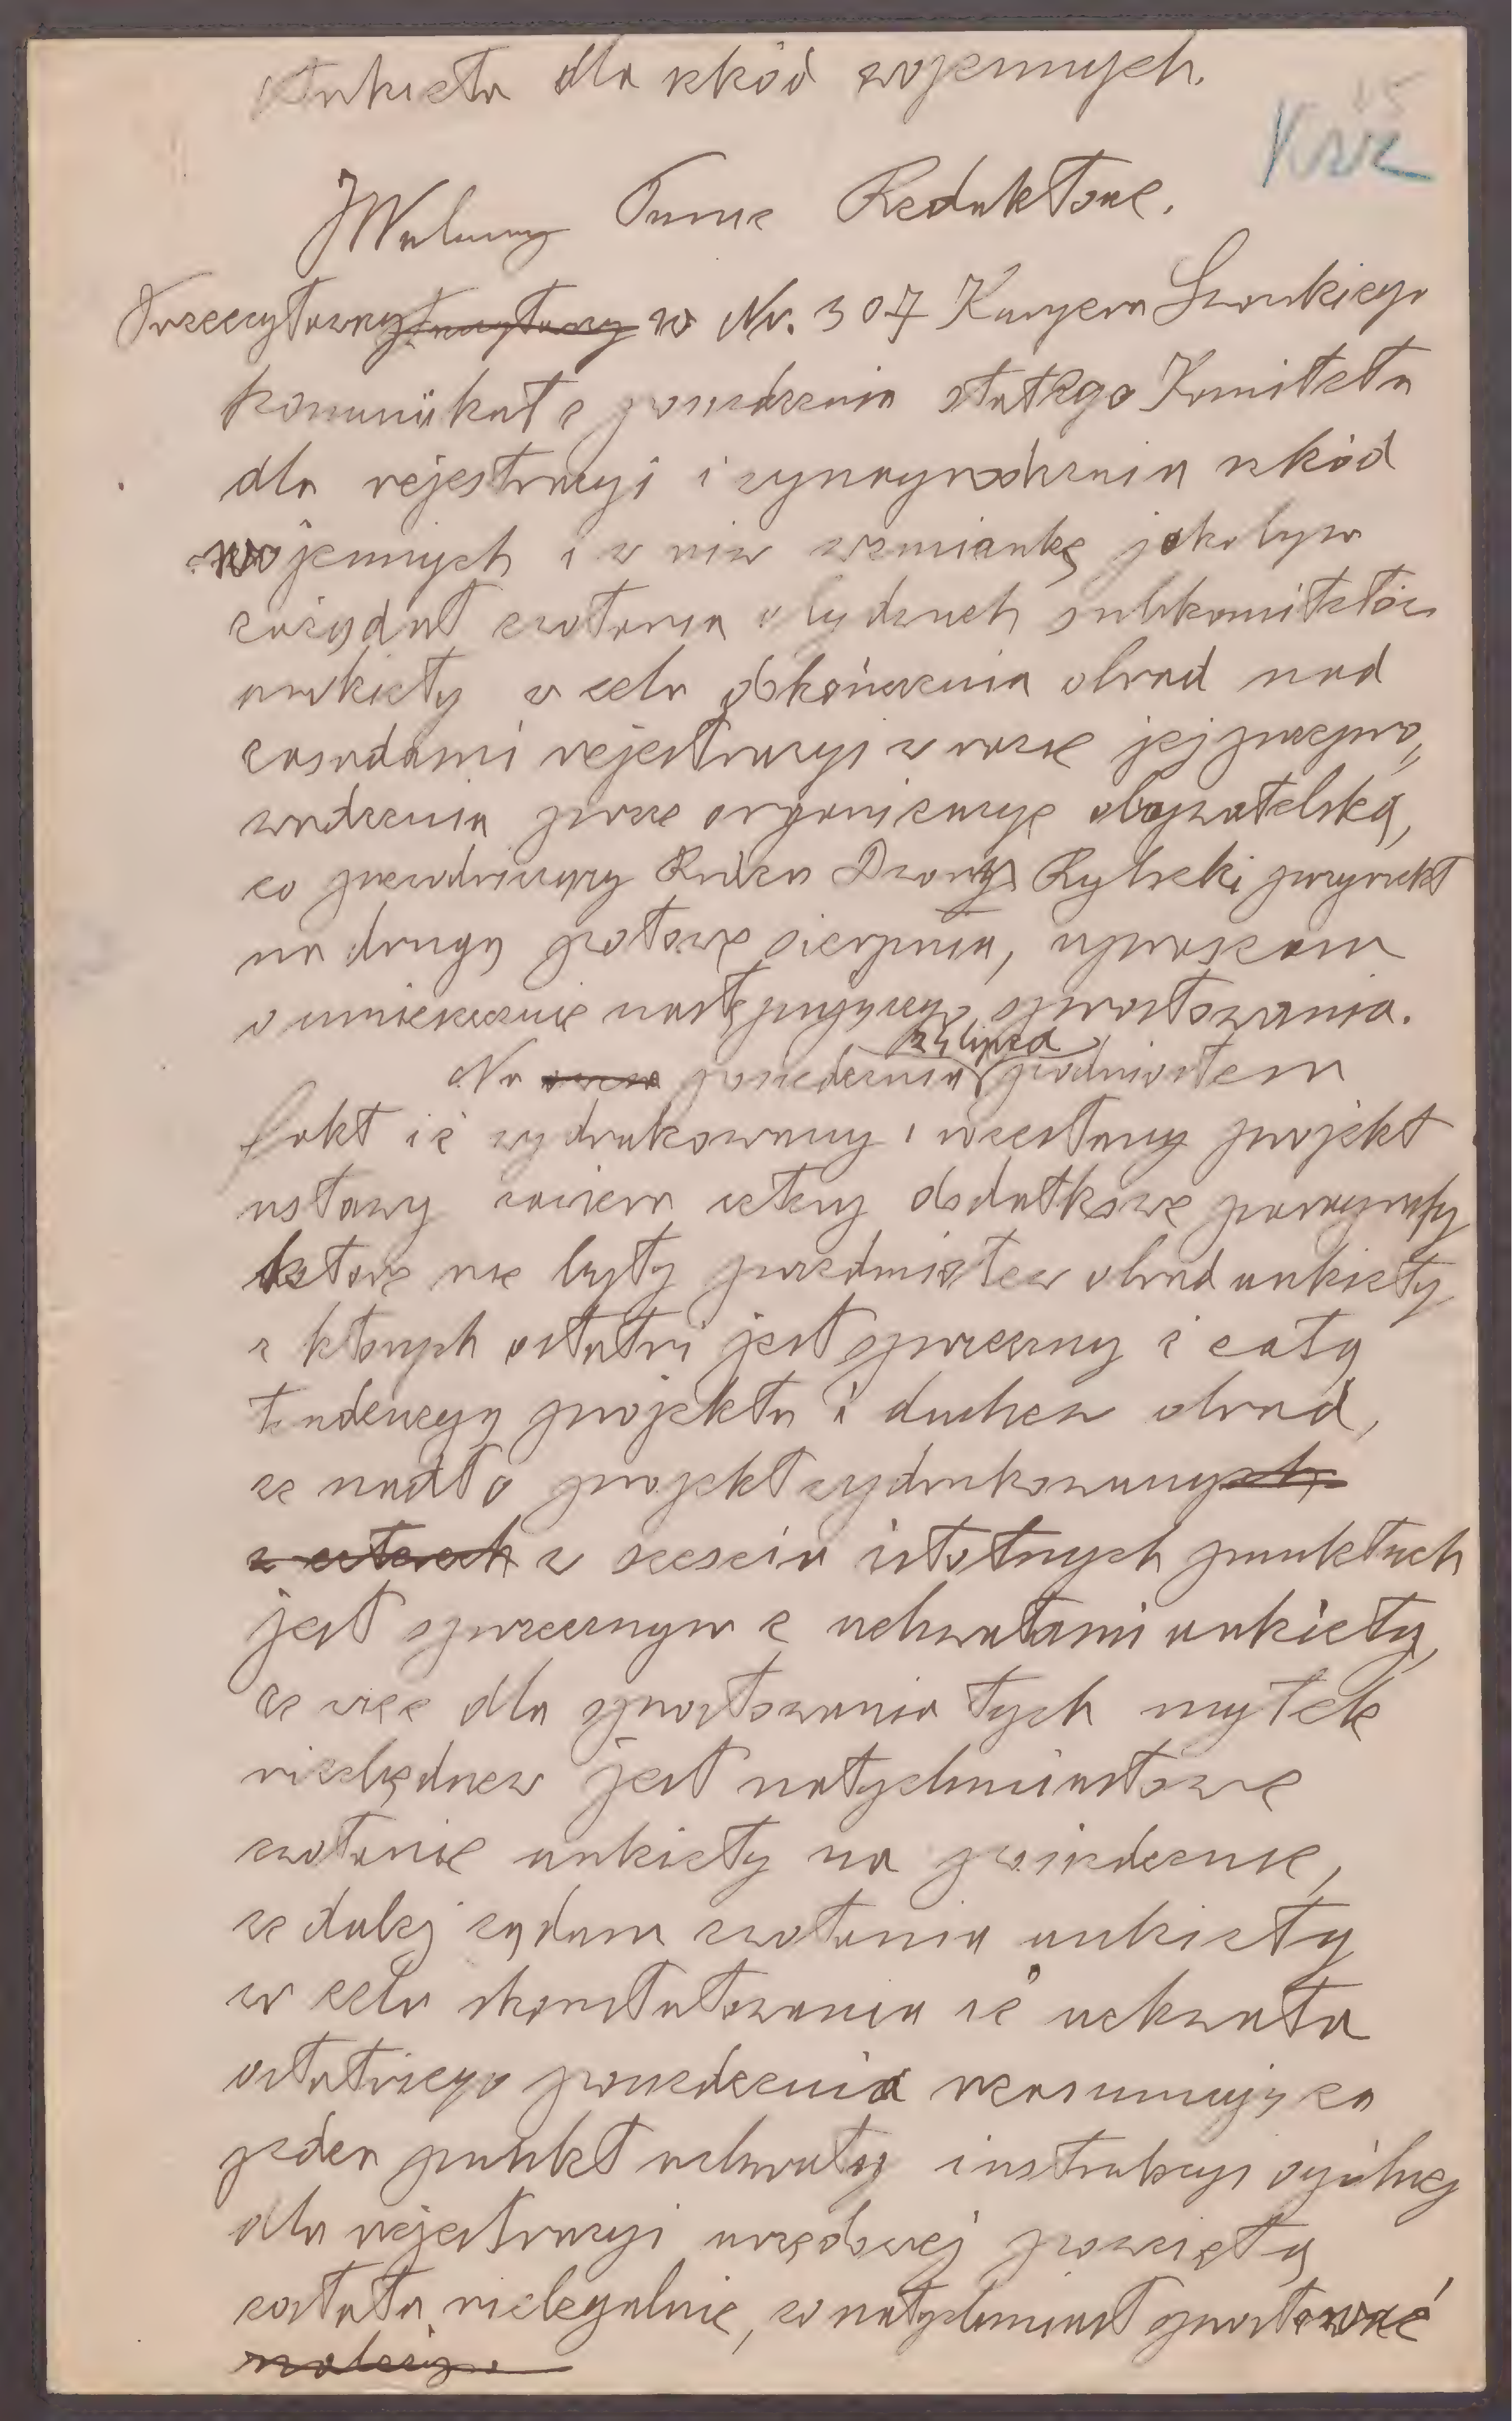 Ankieta dla szkód wojennych.
JWielmożny Panie Redaktorze.
Przeczytawszy w Nr. 307 Kuryera Lwowskiego
komunikat z posiedzenia stałego Komitetu
dla rejestracyi i wynagrodzenia szkód
wojennych i w nim wzmiankę jakobym
zażądał zwołania obydwuch subkomitetów
ankiety w celu dokończenia obrad nad
zasadami rejestracyi w razie jej przepro„
wadzenia przez organizacyę obywatelską,
co przewodniczący Radca Dworu Rybicki przyrzekł
na drugą połowę sierpnia, upraszam
o umieszczenie następującego sprostowania.
24 lipca
Na posiedzeniu podniosłem
fakt iż wydrukowany i rozesłany projekt
ustawy zawiera cztery dodatkowe paragrafy
które nie były przedmiotem obrad ankiety
z których ostatni jest sprzeczny z całą
tendencyą projektu i duchem obrad,
że nadto projekt wydrukowany
w sześciu istotnych punktach
jest sprzecznym z uchwałami ankiety,
że więc dla sprostowania tych myłek
niezbędnem jest natychmiastowe
zwołanie ankiety na posiedzenie,
że dalej żądam zwołania ankiety
w celu skonstatowania iż uchwała
ostatniego posiedzenia reasumująca
jeden punkt uchwały instrukcyi ogólnej
dla rejestracyi urzędowej powziętą
została nielegalnie, co natychmiast sprostować
należy.